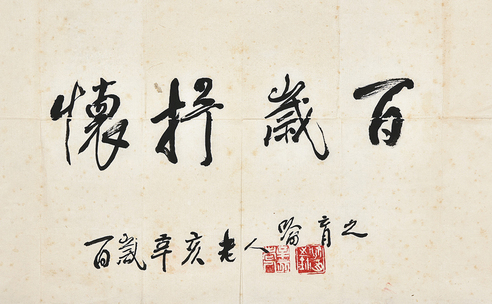 百歲抒懷
百歲辛亥老人喻育之